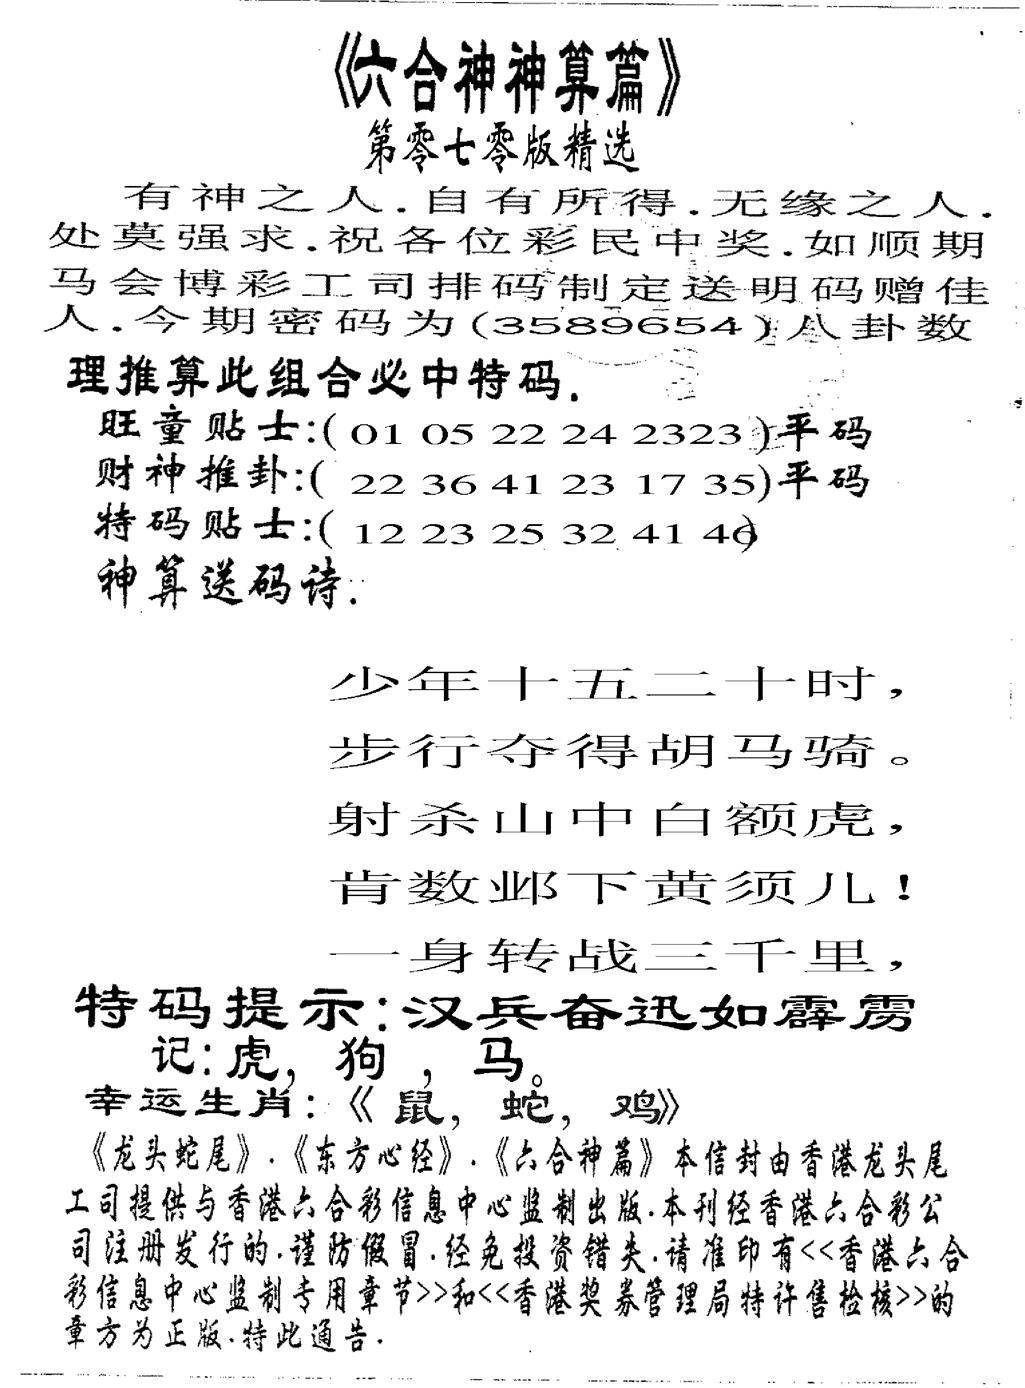 《六合神神算篇》
第零七零版精选
有神之人.自有所得.无缘之人.
处莫强求.祝各位彩民中奖.如顺期
马会博彩工司排码制定送明码赠佳
人.今期密码为(3589654)八卦数
理推算此组合必中特码.
旺童贴士:( 01 05 22 24 2323 )平码
财神推卦:( 22 36 41 23 17 35)平码
特码贴士:( 12 23 25 32 41 46)
神算送码诗.
少年十五二十时,
步行夺得胡马骑。
射杀山中白额虎,
肯数邺下黄须儿!
一身转战三千里,
特码提示:汉兵奋迅如霹雳
记:虎, 狗 , 马。
幸运生肖:《 鼠, 蛇, 鸡》
《龙头蛇尾》.《东方心经》.《六合神篇》本信封由香港龙头尾
工司提供与香港六合彩信息中心监制出版.本刊经香港六合彩公
司注册发行的.谨防假冒.经免投资错失.请准印有<<香港六合
彩信息中心监制专用章节>>和<<香港奖券管理局特许售检核>>的
章方为正版.特此通告.